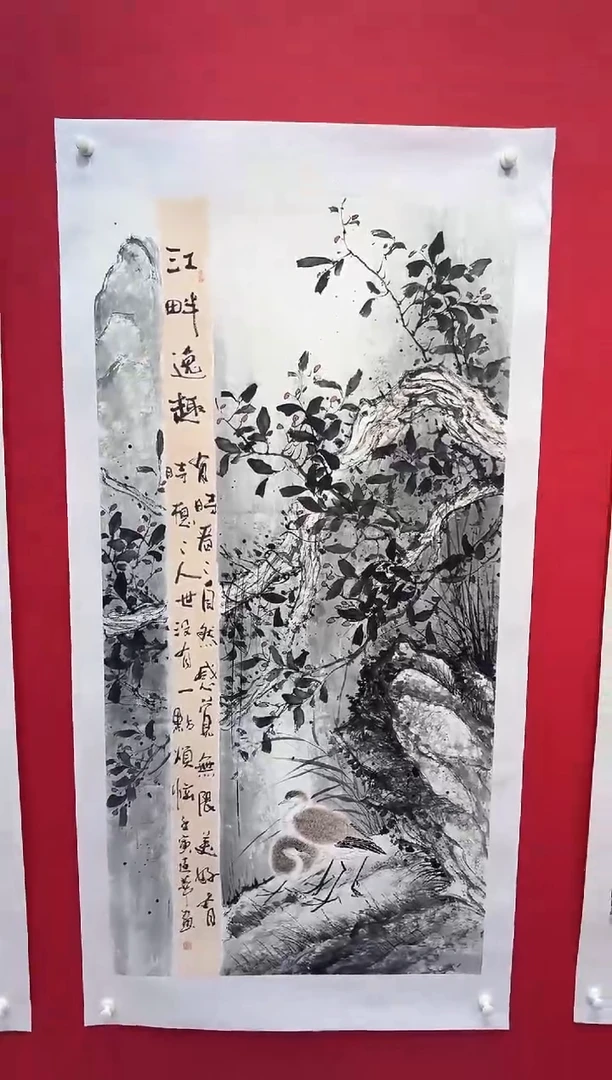 江畔逸趣
有時看看自然感覺無限美好有
時想想人世沒有一點煩惱